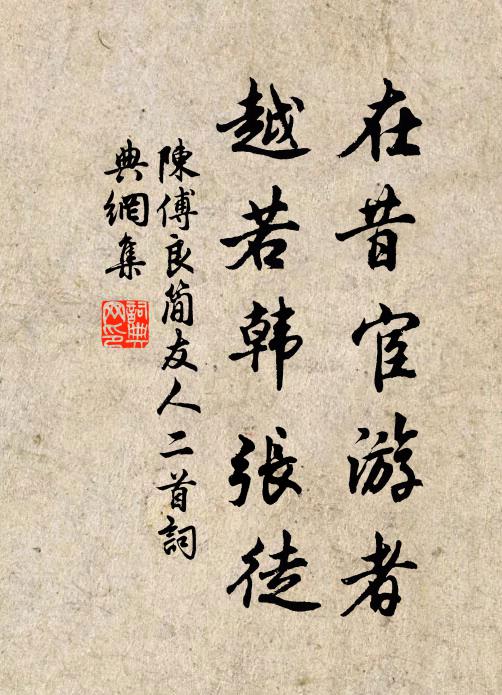 在昔宦游者
越若韩張徒
陳傅良简友人二首詞
典網集
詞典
网印